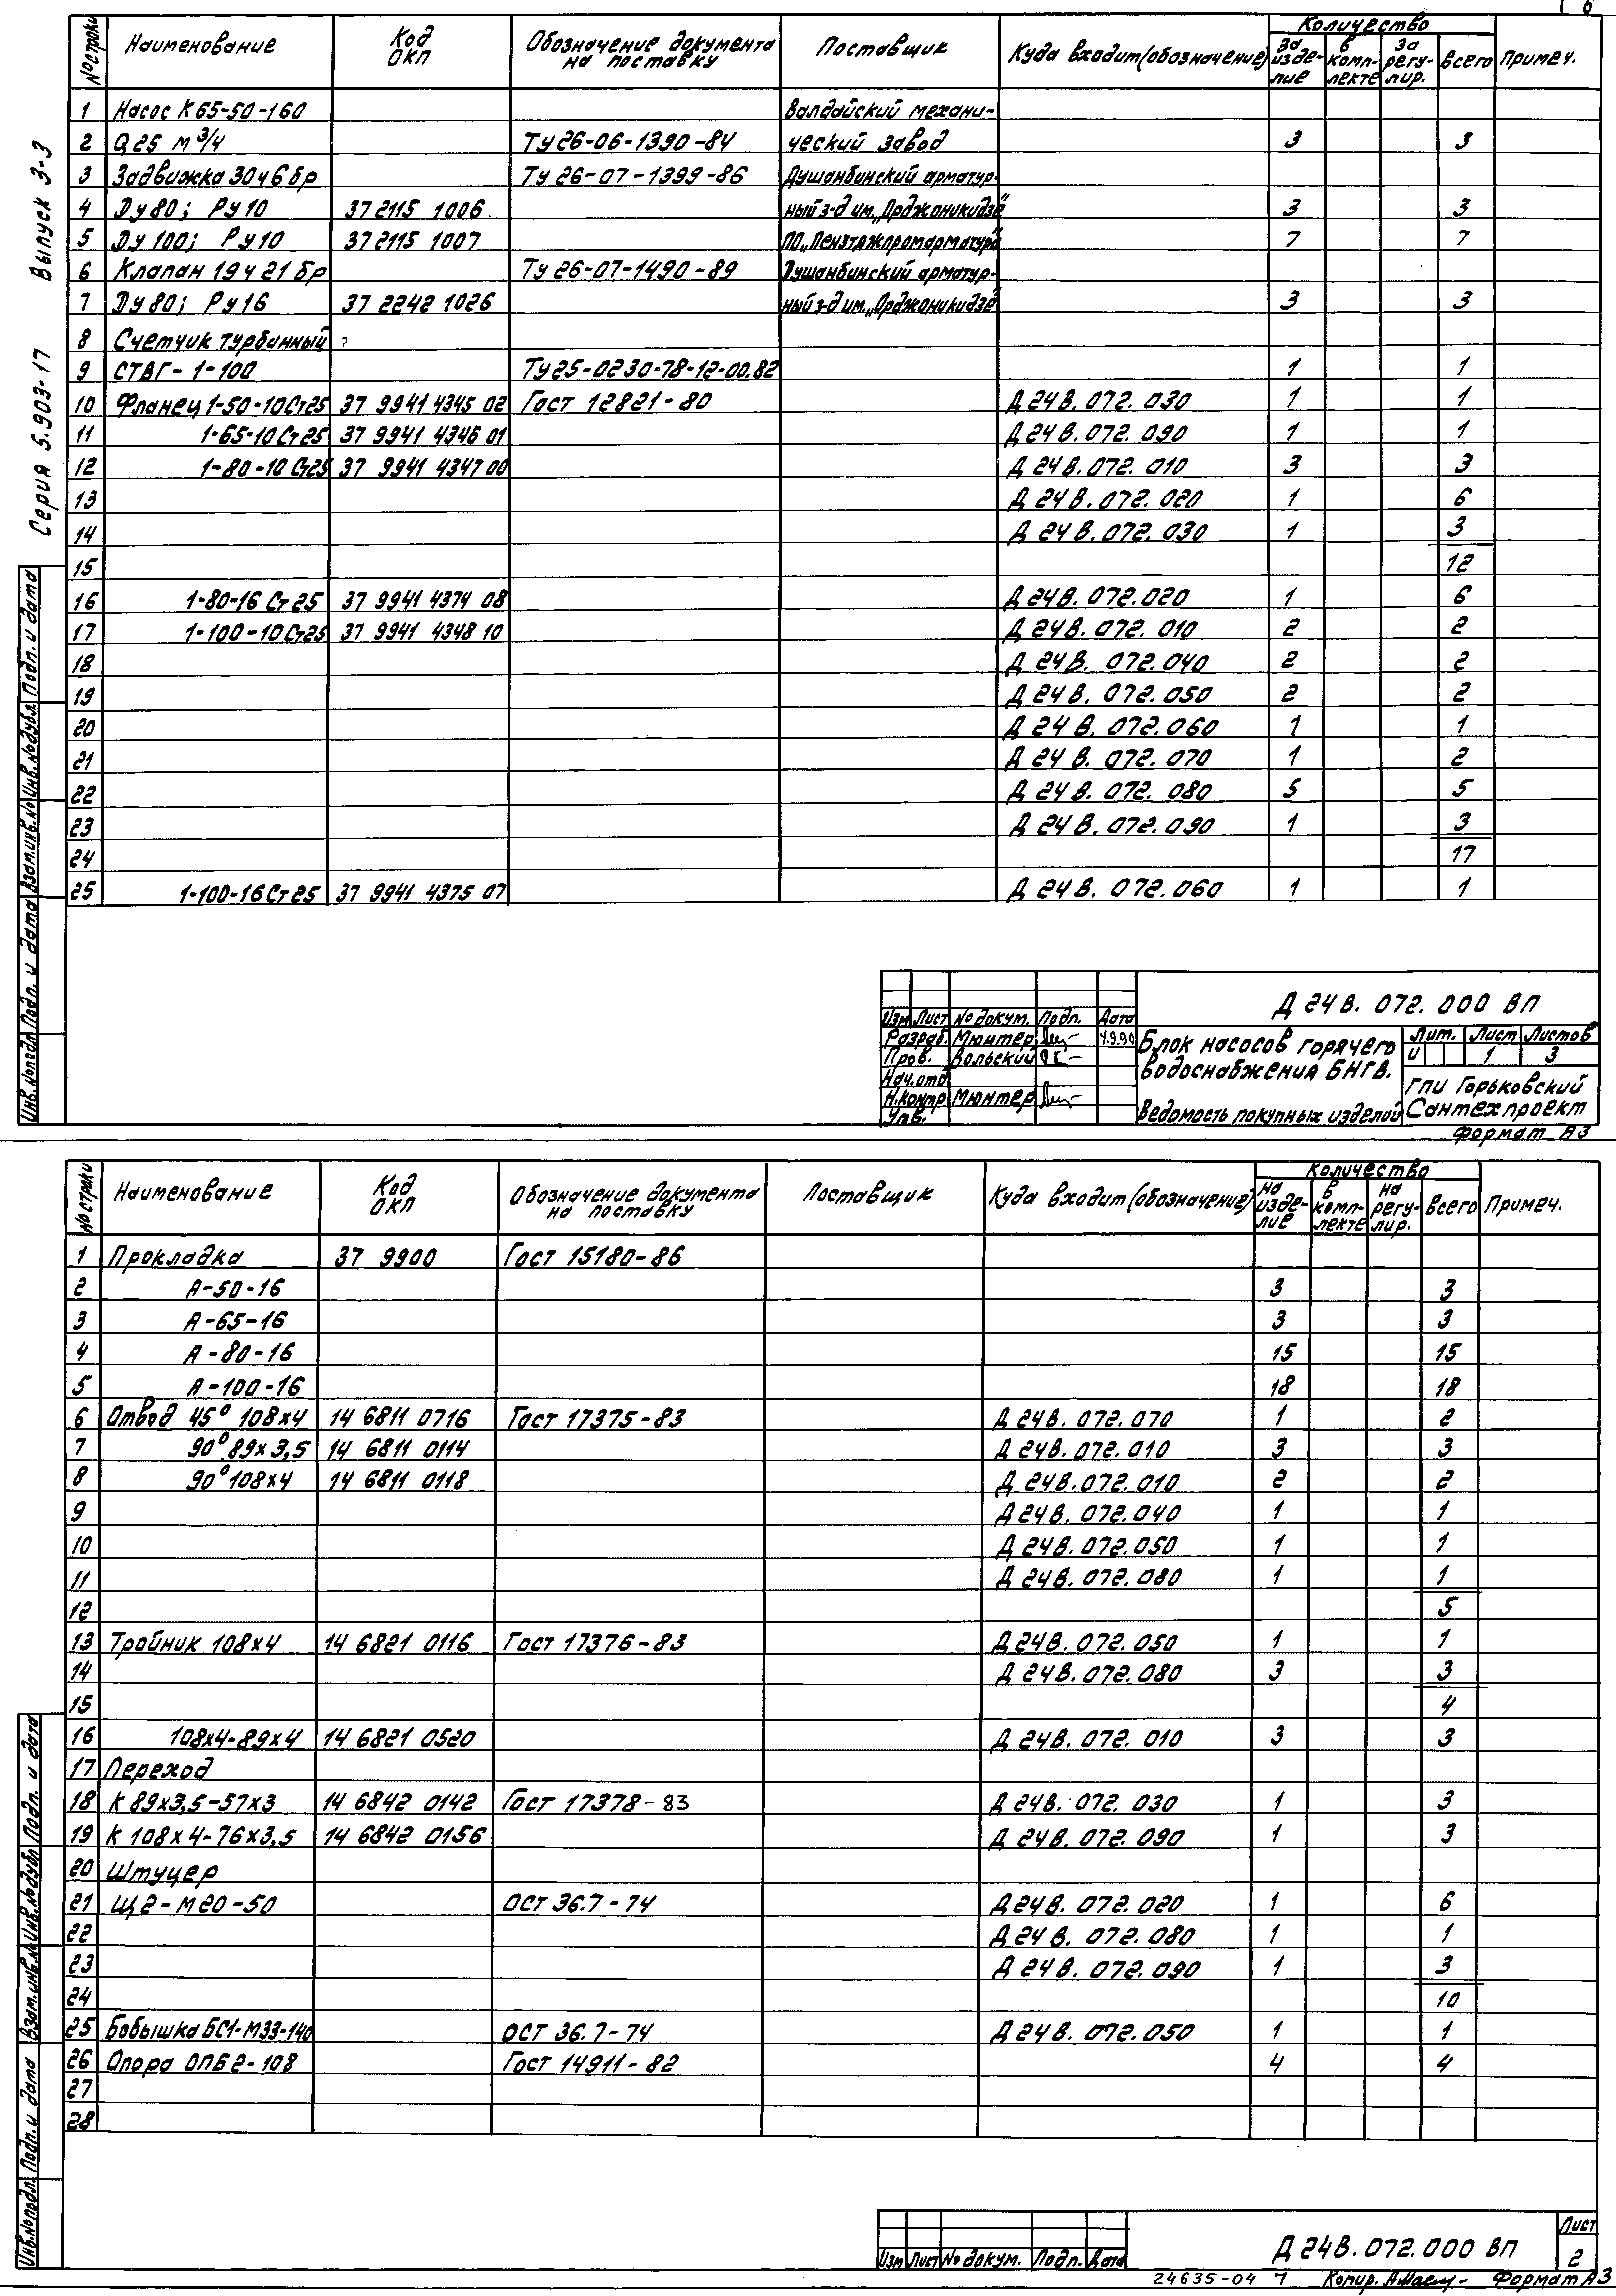 6
Серия 5.903-17 Выпуск 3-3
№ строки Наименование Код ОКП Обозначение документа на поставку Поставщик Куда входит (обозначение) Количество За изделие в комплекте За регулир. Всего Примеч.
1 Насос К65-50-160 Валдайский механи-
2 Q 25 м³/ч ТУ 26-06-1390-84 ческий завод 3 3
3 Задвижка 30ч6бр ТУ 26-07-1399-86 Душанбинский арматур-
4 Ду80; Ру10 37 2115 1006 ный з-д им. „Орджоникидзе" 3 3
5 Ду100; Ру10 37 2115 1007 ПО „Пензтяжпромарматура" 7 7
6 Клапан 19ч21бр ТУ 26-07-1490-89 Душанбинский арматур-
7 Ду80; Ру16 37 2242 1026 ный з-д им. „Орджоникидзе" 3 3
8 Счетчик турбинный
9 СТВГ-1-100 ТУ25-0230-78-12-00.82 1 1
10 Фланец 1-50-10Ст25 37 9941 4345 02 Гост 12821-80 Д 24В.072.030 1 1
11 1-65-10Ст25 37 9941 4346 01 Д 24В.072.090 1 1
12 1-80-10Ст25 37 9941 4347 00 Д 24В.072.010 3 3
13 Д 24В.072.020 1 6
14 Д 24В.072.030 1 3
15 12
16 1-80-16 Ст25 37 9941 4374 08 Д 24В.072.020 1 6
17 1-100-10Ст25 37 9941 4348 10 Д 24В.072.010 2 2
18 Д 24В.072.040 2 2
19 Д 24В.072.050 2 2
20 Д 24В.072.060 1 1
21 Д 24В.072.070 1 2
22 Д 24В.072.080 5 5
23 Д 24В.072.090 1 3
24 17
25 1-100-16Ст25 37 9941 4375 07 Д 24В.072.060 1 1
Инв.№подл. Подп. и дата Взам.инв.№ Инв.№дубл. Подп. и дата
Д 24В.072.000 ВП
Изм Лист № докум. Подп. Дата
Разраб. Мюнтер 4.9.90
Пров. Вольский
Нач.отд
Н.контр Мюнтер
Утв.
Блок насосов горячего
водоснабжения БНГВ.
Ведомость покупных изделий
Лит. Лист Листов
И 1 3
ГПИ Горьковский
Сантехпроект
Формат А3
№ строки Наименование Код ОКП Обозначение документа на поставку Поставщик Куда входит (обозначение) Количество на изделие в комплекте на регулир. Всего Примеч.
1 Прокладка 37 9900 Гост 15180-86
2 А-50-16 3 3
3 А-65-16 3 3
4 А-80-16 15 15
5 А-100-16 18 18
6 Отвод 45° 108х4 14 6811 0716 Гост 17375-83 Д 24В.072.070 1 2
7 90° 89х3,5 14 6811 0114 Д 24В.072.010 3 3
8 90° 108х4 14 6811 0118 Д 24В.072.010 2 2
9 Д 24В.072.040 1 1
10 Д 24В.072.050 1 1
11 Д 24В.072.080 1 1
12 5
13 Тройник 108х4 14 6821 0116 Гост 17376-83 Д 24В.072.050 1 1
14 Д 24В.072.080 3 3
15 4
16 108х4-89х4 14 6821 0520 Д 24В.072.010 3 3
17 Переход
18 К 89х3,5-57х3 14 6842 0142 Гост 17378-83 Д 24В.072.030 1 3
19 К 108х4-76х3,5 14 6842 0156 Д 24В.072.090 1 3
20 Штуцер
21 Щ2-М20-50 ОСТ 36.7-74 Д 24В.072.020 1 6
22 Д 24В.072.080 1 1
23 Д 24В.072.090 1 3
24 10
25 Бобышка БС1-М33-140 ОСТ 36.7-74 Д 24В.072.050 1 1
26 Опора ОПБ2-108 Гост 14911-82 4 4
27
28
Инв.№подл. Подп. и дата Взам.инв.№ Инв.№дубл Подп. и дата
Изм Лист № докум. Подп. Дата
Д 24В.072.000 ВП
Лист
2
24635-04 7 Копир. Формат А3